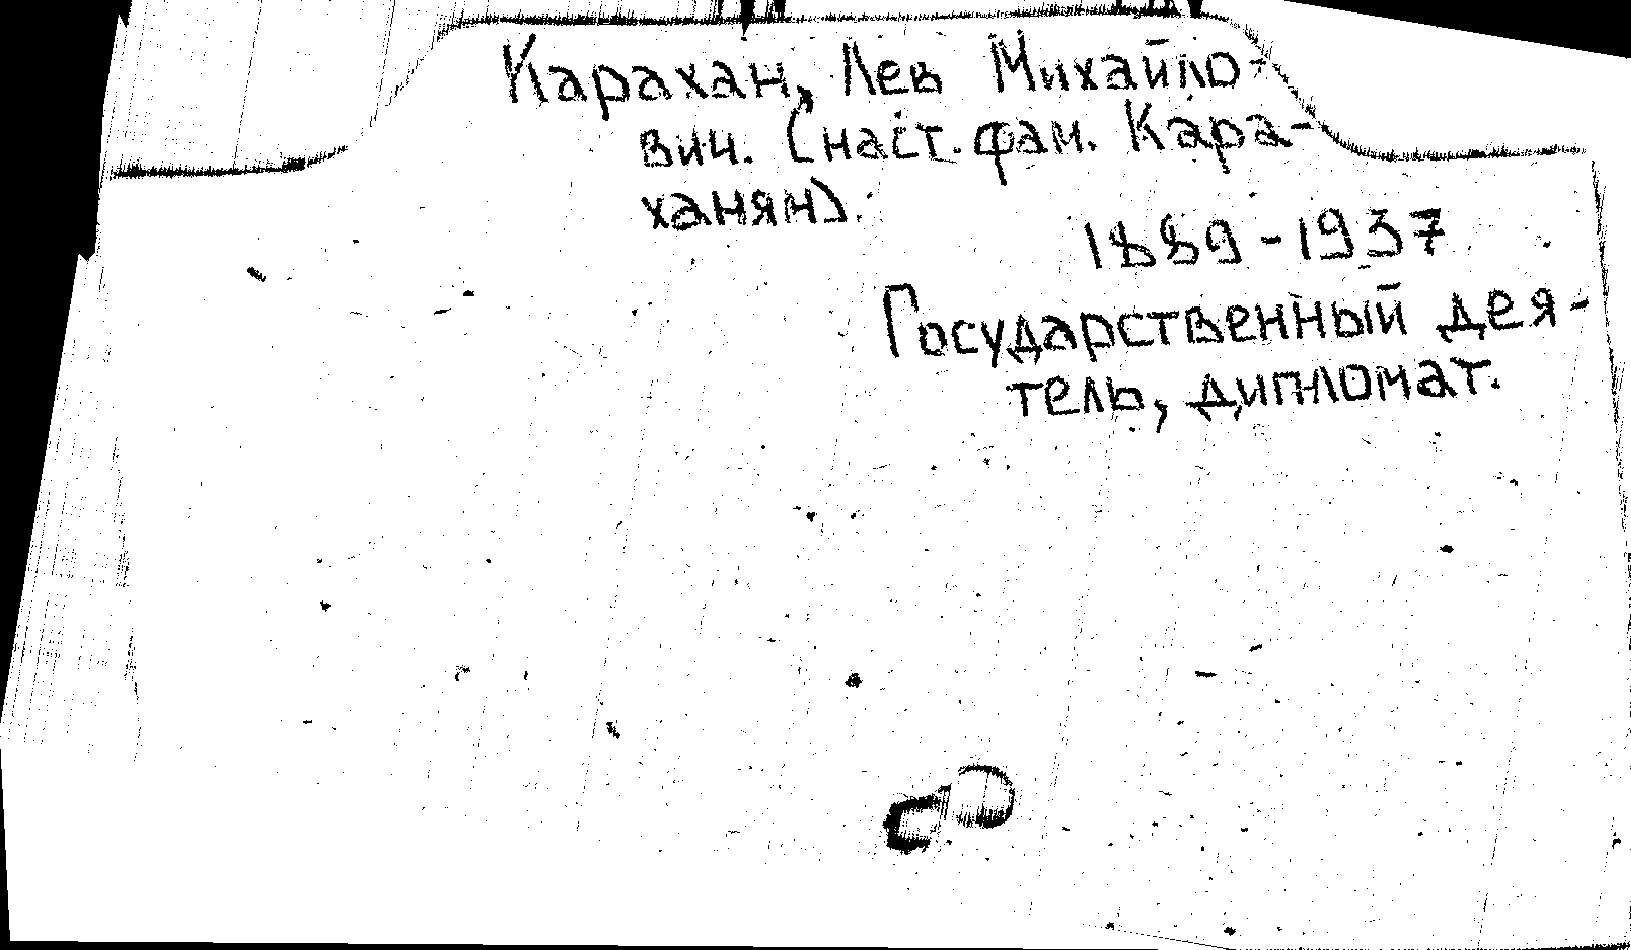 Карахан, Лев Михайло-
вич. (наст. фам. Кара-
ханян).
1889-1937
Государственный дея-
тель, дипломат.